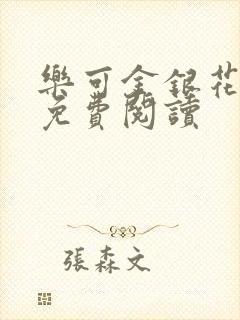 樂可金銀花
免費閱讀
張森文